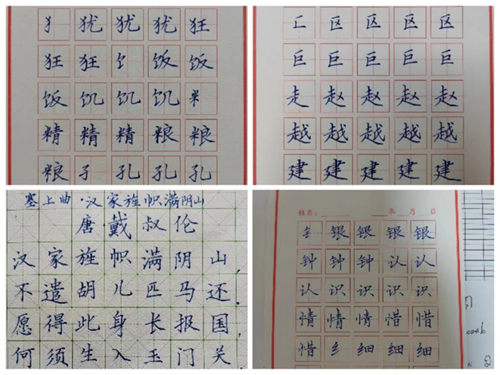 犭犹犹犹狂
狂狂饣饭饭
饭饥饥饥米
精精精粮粮
粮孑孔孔孔
匚区区区区
巨巨巨巨巨
走赵赵赵赵
越越越越越
建建建建建
塞上曲·汉家旌帜满阴山
唐戴叔伦
汉家旌帜满阴山,
不遣胡儿匹马还.
愿得此身长报国,
何须生入玉门关
姓名: 年 月 日
钅银银银银
钟钟钟认认
认识识识识
忄情情惜惜
惜纟细细细